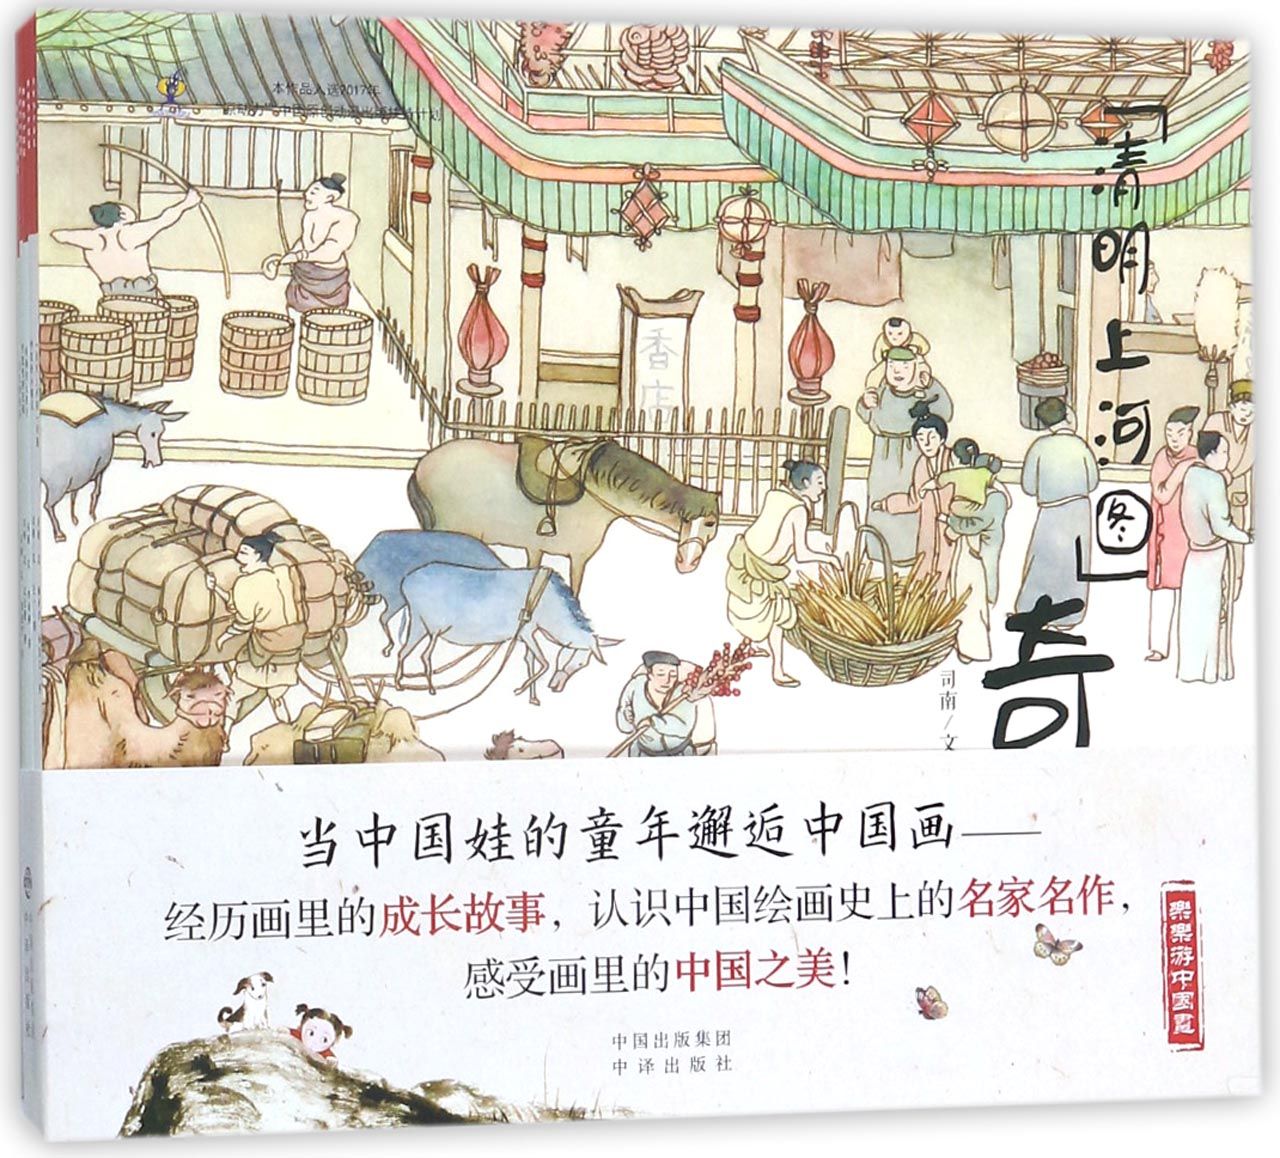 本作品入选2017年
"原动力"中国原创动漫出版扶持计划
「清明上河图」奇
香店
司南/文
当中国娃的童年邂逅中国画——
经历画里的成长故事，认识中国绘画史上的名家名作，
感受画里的中国之美！
樂樂游中国畫
中国出版集团
中译出版社